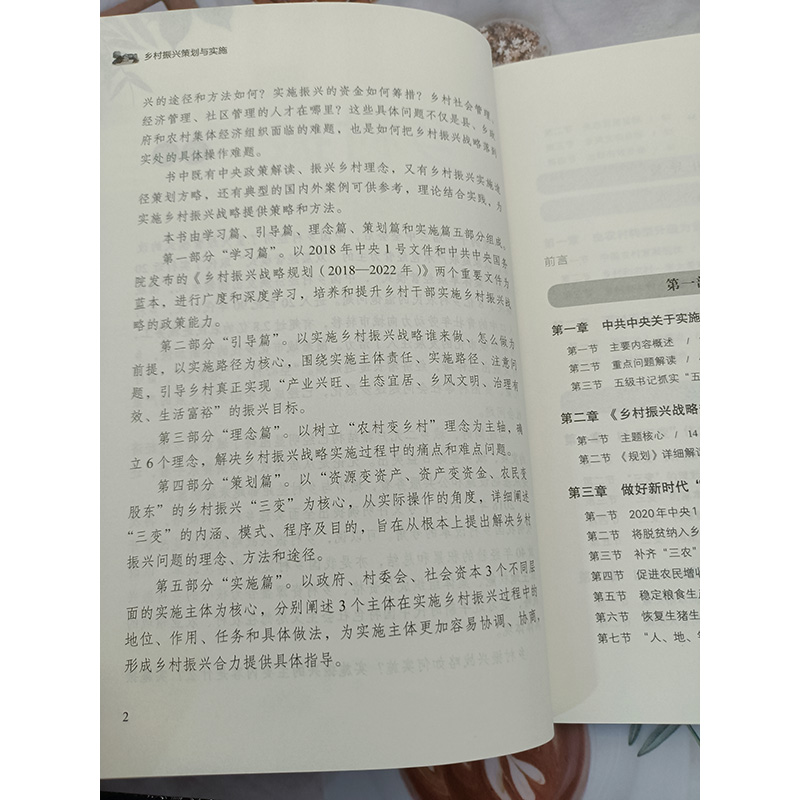 乡村振兴策划与实施
兴的途径和方法如何？实施振兴的资金如何筹措？乡村社会管理、
经济管理、社区管理的人才在哪里？这些具体问题不仅是县、乡政
府和农村集体经济组织面临的难题，也是如何把乡村振兴战略落到
实处的具体操作难题。
书中既有中央政策解读、振兴乡村理念，又有乡村振兴实施途
径策划方略，还有典型的国内外案例可供参考，理论结合实践，为
实施乡村振兴战略提供策略和方法。
本书由学习篇、引导篇、理念篇、策划篇和实施篇五部分组成。
第一部分“学习篇”。以2018年中央1号文件和中共中央国务
院发布的《乡村振兴战略规划（2018—2022年）》两个重要文件为
蓝本，进行广度和深度学习，培养和提升乡村干部实施乡村振兴战
略的政策能力。
第二部分“引导篇”。以实施乡村振兴战略谁来做、怎么做为
前提，以实施路径为核心，围绕实施主体责任、实施路径、注意问
题，引导乡村真正实现“产业兴旺、生态宜居、乡风文明、治理有
效、生活富裕”的振兴目标。
第三部分“理念篇”。以树立“农村变乡村”理念为主轴，确
立6个理念，解决乡村振兴战略实施过程中的痛点和难点问题。
第四部分“策划篇”。以“资源变资产、资产变资金、农民变
股东”的乡村振兴“三变”为核心，从实际操作的角度，详细阐述
“三变”的内涵、模式、程序及目的，旨在从根本上提出解决乡村
振兴问题的理念、方法和途径。
第五部分“实施篇”。以政府、村委会、社会资本3个不同层
面的实施主体为核心，分别阐述3个主体在实施乡村振兴过程中的
地位、作用、任务和具体做法，为实施主体更加容易协调、协商，
形成乡村振兴合力提供具体指导。
2
前言
第一部
第一章 中共中央关于实施
第一节 主要内容概述 /
第二节 重点问题解读 /
第三节 五级书记抓实“五
第二章 《乡村振兴战略
第一节 主题核心 / 14
第二节 《规划》详细解读
第三章 做好新时代“
第一节 2020年中央1
第二节 将脱贫纳入乡
第三节 补齐“三农”
第四节 促进农民增收
第五节 稳定粮食生产
第六节 恢复生猪生
第七节 “人、地、钱